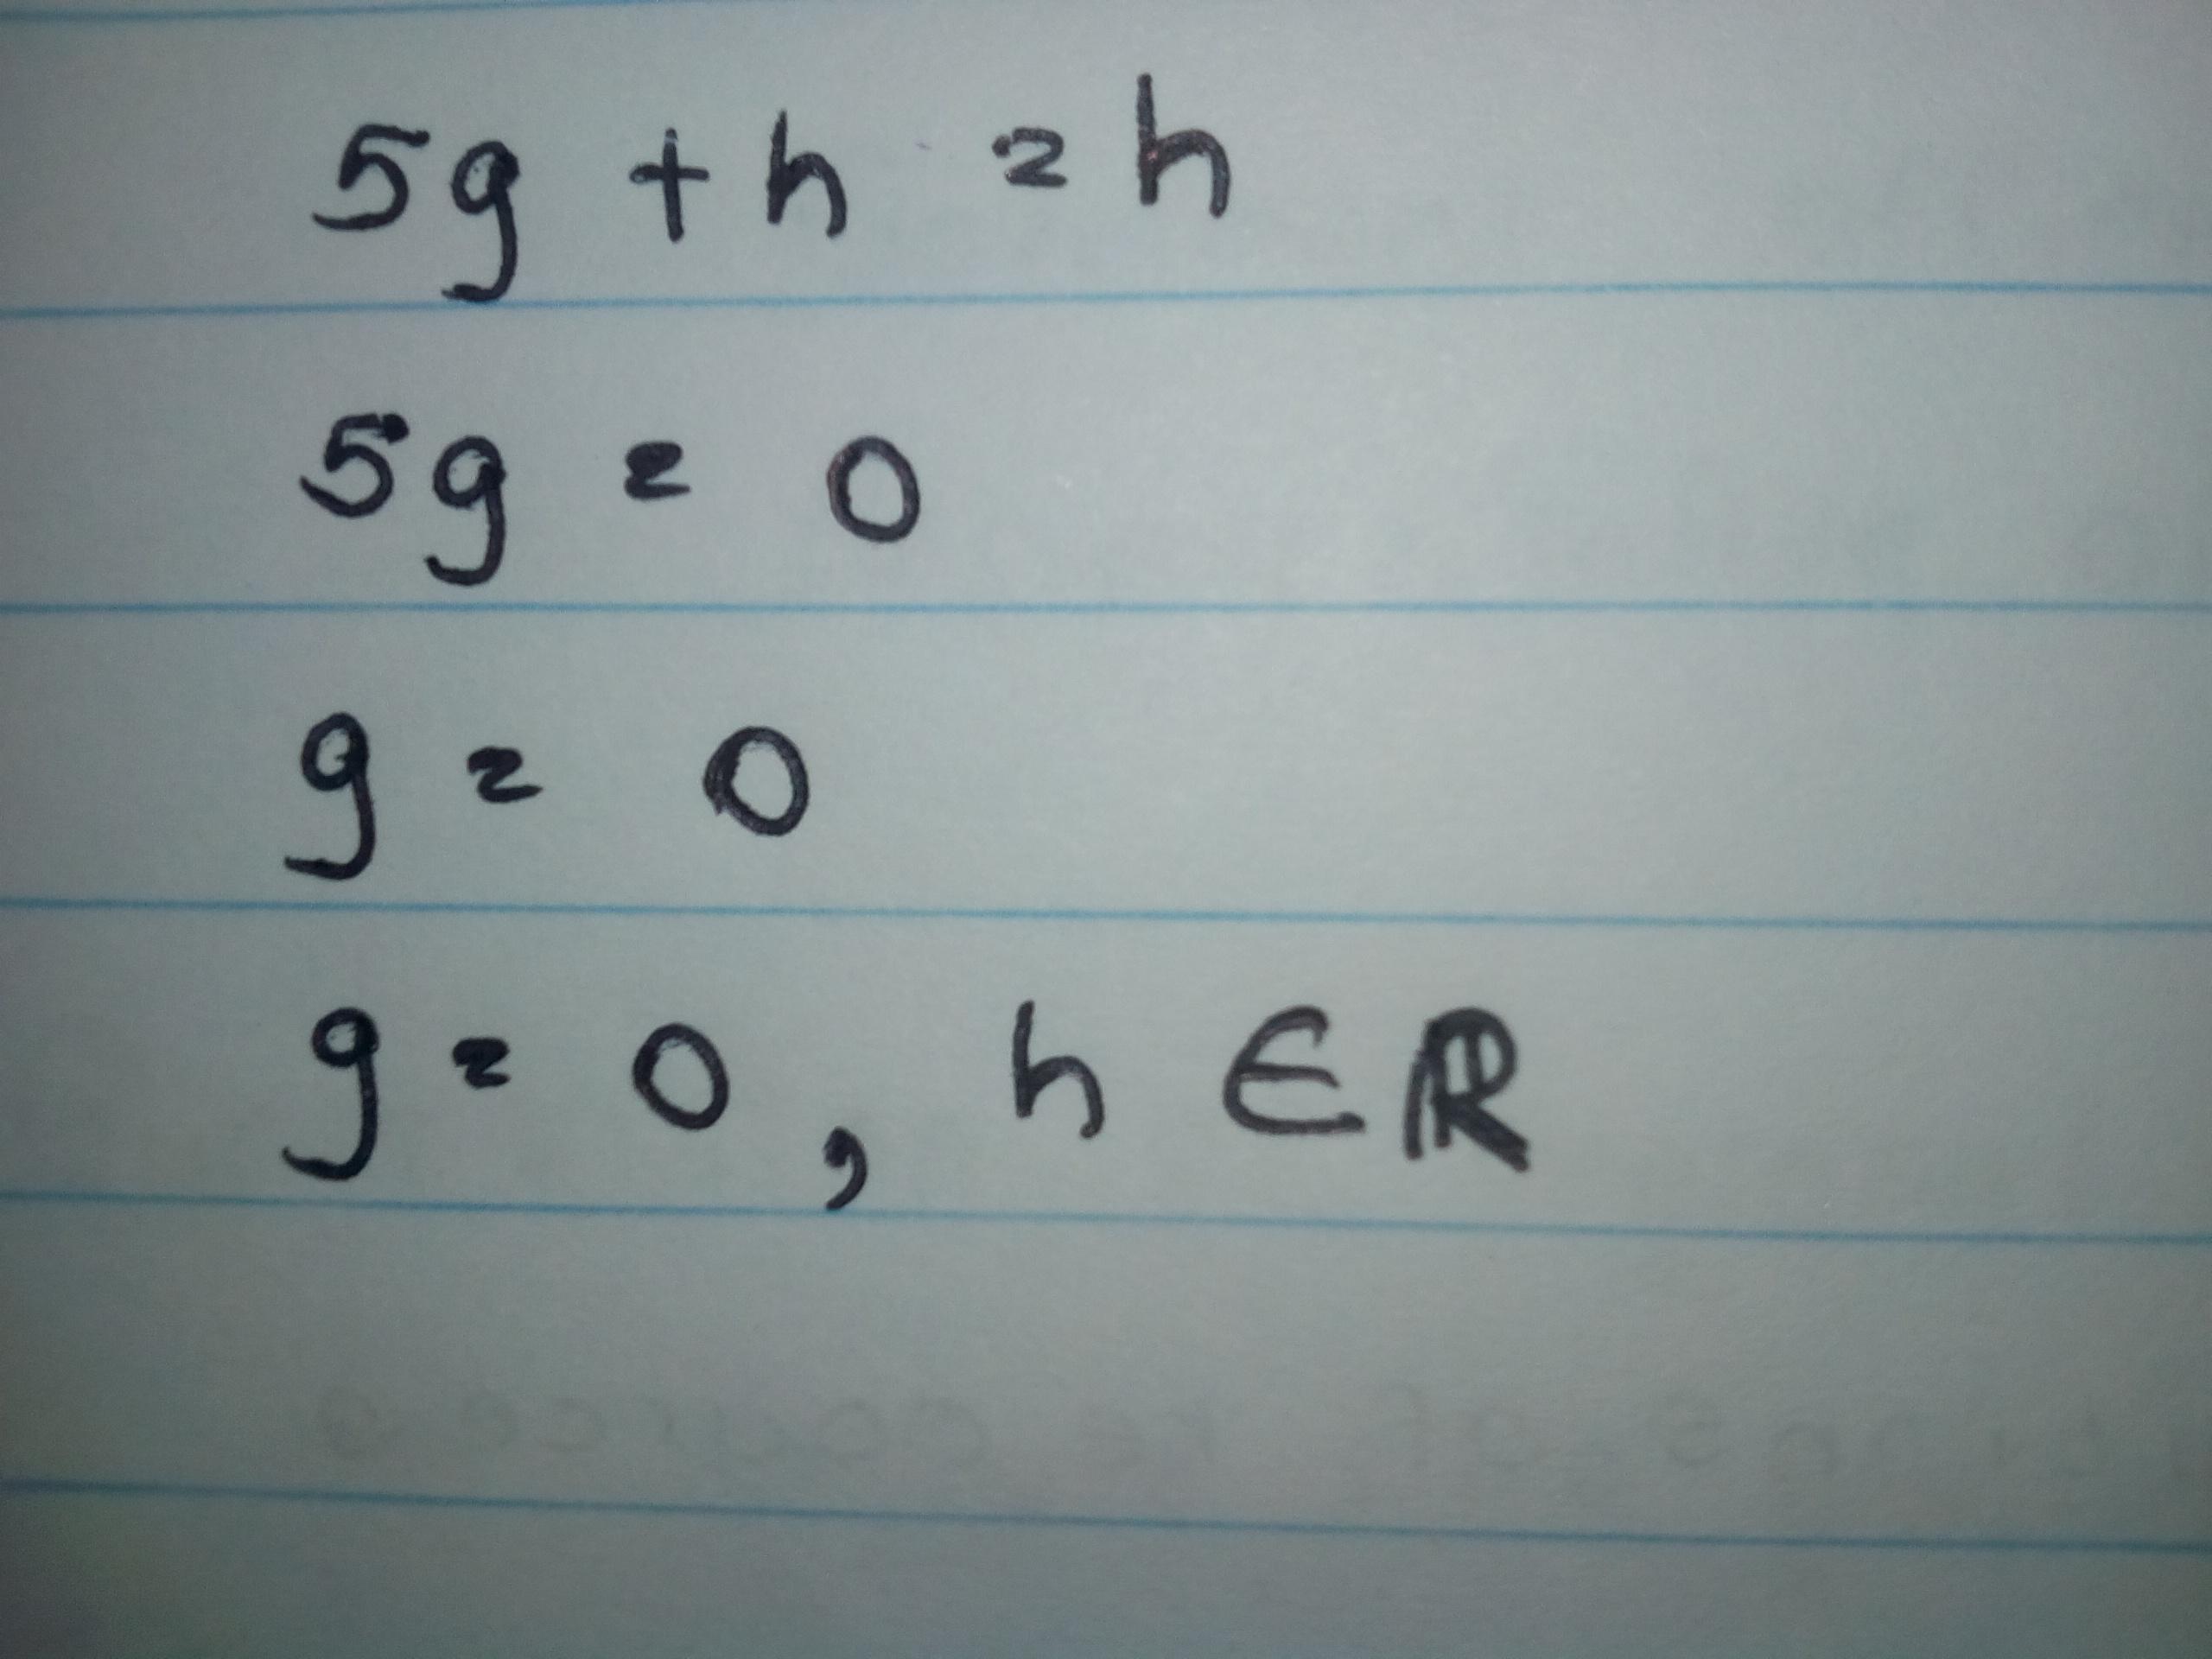 5g + h = h
5g = 0
g = 0
g = 0, h ∈ ℝ